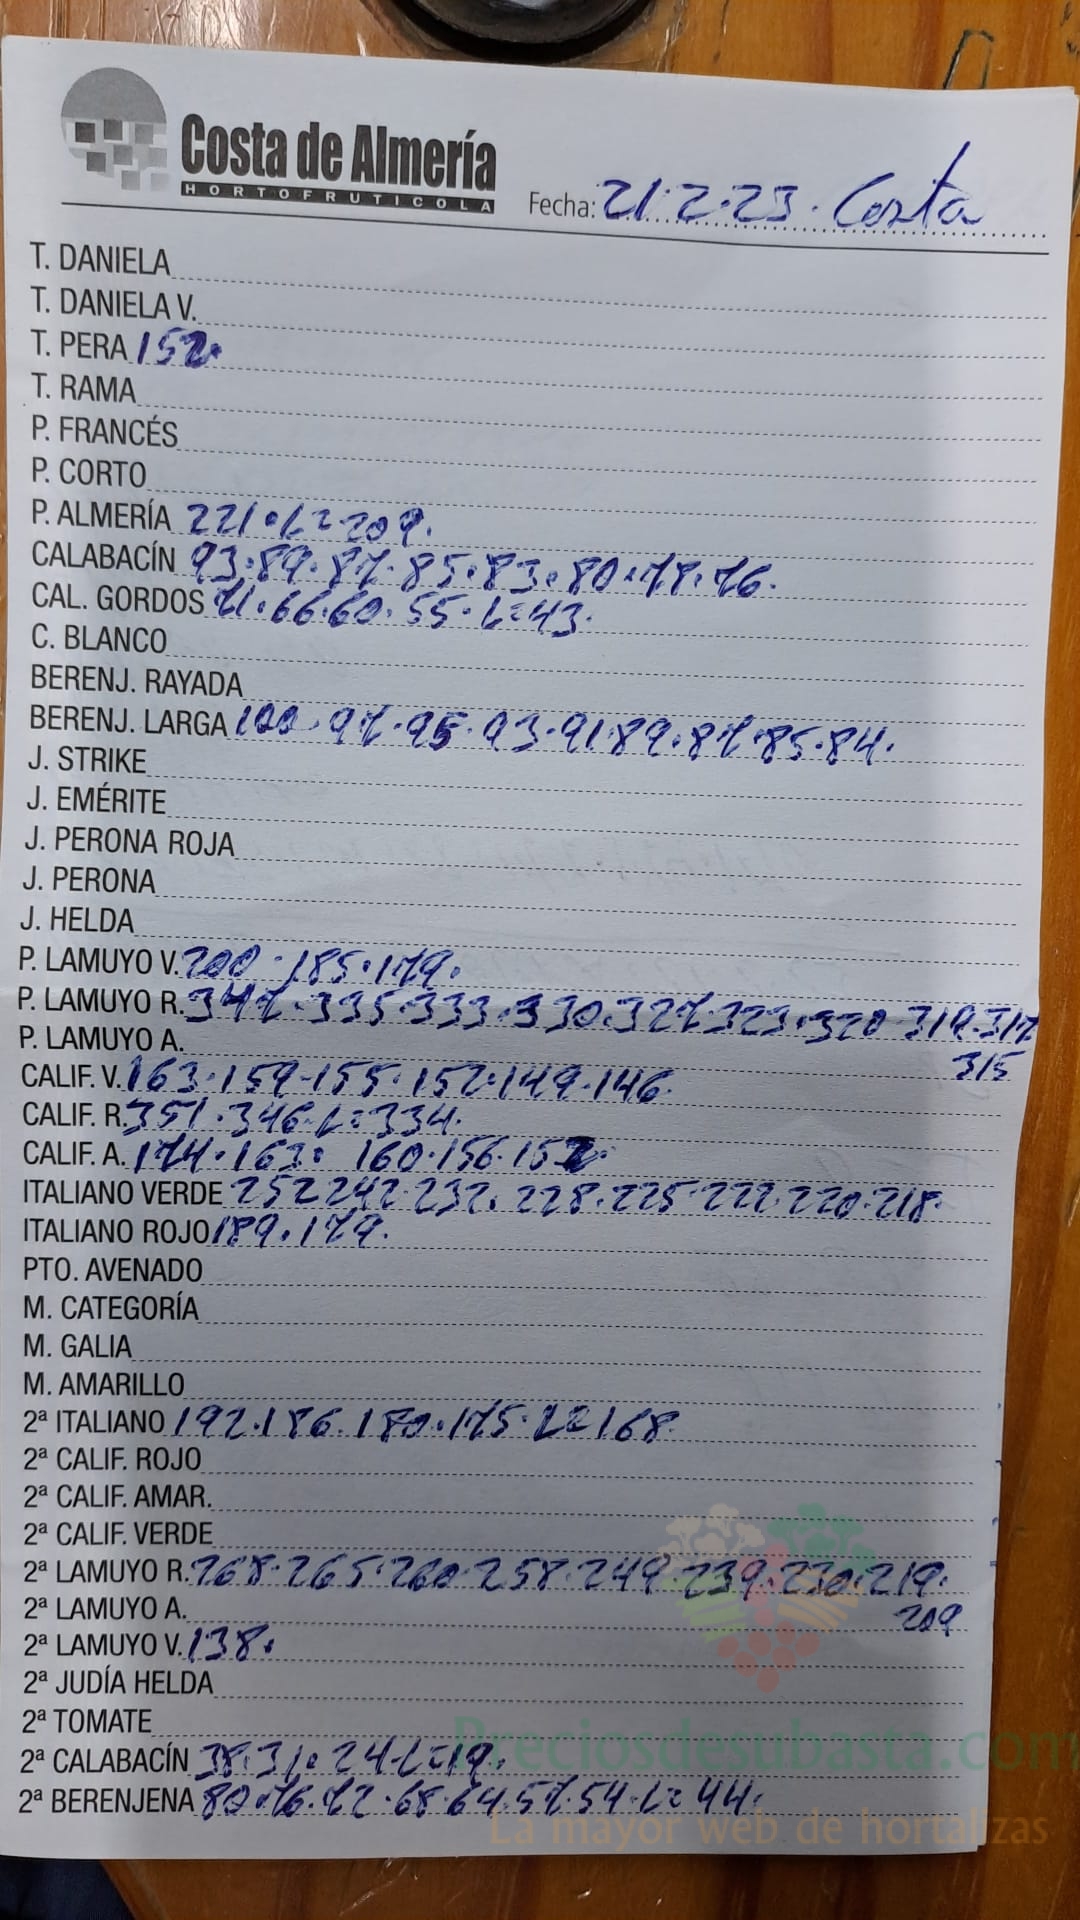 Costa de Almería
HORTOFRUTICOLA
Fecha: 21·2·23· Costa
T. DANIELA
T. DANIELA V.
T. PERA 152·
T. RAMA
P. FRANCÉS
P. CORTO
P. ALMERÍA 221·L=209.
CALABACÍN 93·89·87·85·83·80·78·76·
CAL. GORDOS 71·66·60·55·L=43·
C. BLANCO
BERENJ. RAYADA
BERENJ. LARGA 100·97·95·93·91·89·87·85·84·
J. STRIKE
J. EMÉRITE
J. PERONA ROJA
J. PERONA
J. HELDA
P. LAMUYO V. 200·185·179·
P. LAMUYO R. 347·335·333·330·327·323·320·319·317
P. LAMUYO A.
315
CALIF. V. 163·159-155·152·149·146·
CALIF. R. 351·346·L=334·
CALIF. A. 174·163· 160·156·152·
ITALIANO VERDE 252 242·232·228·225·222·220·218·
ITALIANO ROJO 189·179·
PTO. AVENADO
M. CATEGORÍA
M. GALIA
M. AMARILLO
2ª ITALIANO 192·186·180·175·L=168·
2ª CALIF. ROJO
2ª CALIF. AMAR.
2ª CALIF. VERDE
2ª LAMUYO R. 268·265·260·258·249·239·230·219·
2ª LAMUYO A. 209
2ª LAMUYO V. 138·
2ª JUDÍA HELDA
2ª TOMATE
Preciosdesubasta.com
2ª CALABACÍN 38·31·24·L=19·
2ª BERENJENA 80·76·72·68·64·57·54·L=44·
La mayor web de hortalizas